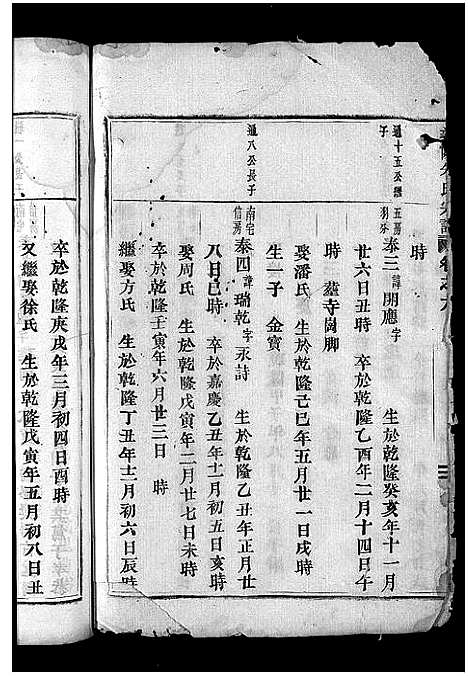 氏宗譜 卷之九
時
通十五公繼子
五房
泰三 諱開應 字 生於乾隆癸亥年十一月
廿六日丑時 卒於乾隆乙酉年二月十四日午
時 葬寺崗脚
娶潘氏 生於乾隆己巳年五月廿一日戌時
生一子 金寶
通八公長子
南宅信房
泰四 諱瑞乾 字永詩 生於乾隆乙丑年正月廿
八日巳時 卒於嘉慶乙丑年十一月初五日亥時
娶周氏 生於乾隆戊寅年二月廿七日未時
卒於乾隆壬寅年六月廿三日 時
繼娶方氏 生於乾隆丁丑年十二月初六日辰時
卒於乾隆庚戌年三月初四日酉時
又繼娶徐氏 生於乾隆戊寅年五月初八日丑